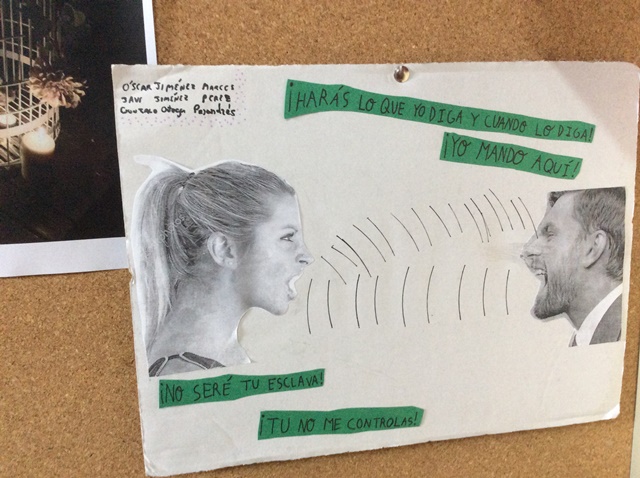 ÓSCAR JIMÉNEZ
JAVI JIMÉNEZ PEREZ
GONZALO Ortega
¡HARÁS LO QUE YO DIGA Y CUANDO LO DIGA!
¡YO MANDO AQUÍ!
¡NO SERÉ TU ESCLAVA!
¡TU NO ME CONTROLAS!